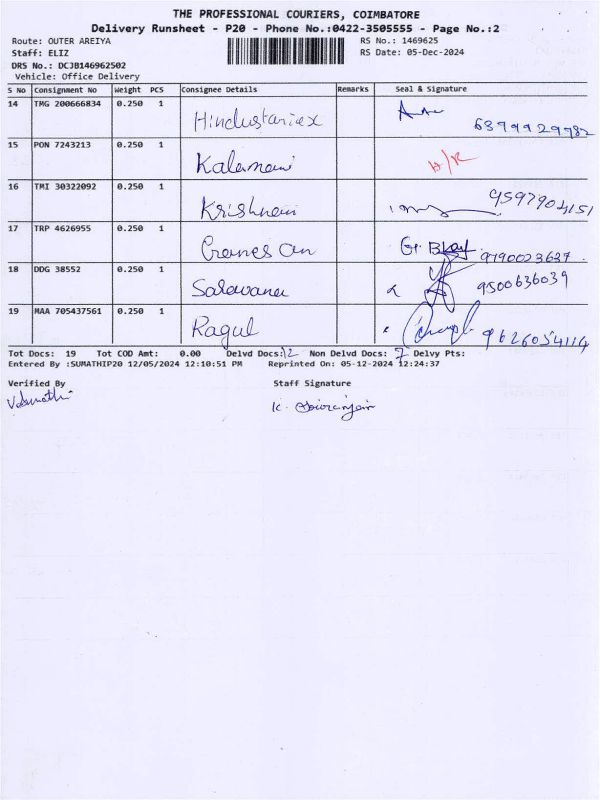 THE PROFESSIONAL COURIERS, COIMBATORE
Delivery Runsheet - P20 - Phone No.:0422-3505555 - Page No.:2
Route: OUTER AREIYA RS No.: 1469625
Staff: ELIZ RS Date: 05-Dec-2024
DRS No.: DCJB146962502
Vehicle: Office Delivery
S No Consignment No Weight PCS Consignee Details Remarks Seal & Signature
14 TMG 200666834 0.250 1 Hindustaniex 6379929782
15 PON 7243213 0.250 1 Kalamani H/R
16 TMI 30322092 0.250 1 Krishnan 9597904151
17 TRP 4626955 0.250 1 Ganesan 9790023637
18 DDG 38552 0.250 1 Saravana 9500636039
19 MAA 705437561 0.250 1 Ragul 9626054114
Tot Docs: 19 Tot COD Amt: 0.00 Delvd Docs: 12 Non Delvd Docs: 7 Delvy Pts:
Entered By :SUMATHIP20 12/05/2024 12:10:51 PM Reprinted On: 05-12-2024 12:24:37
Verified By Staff Signature